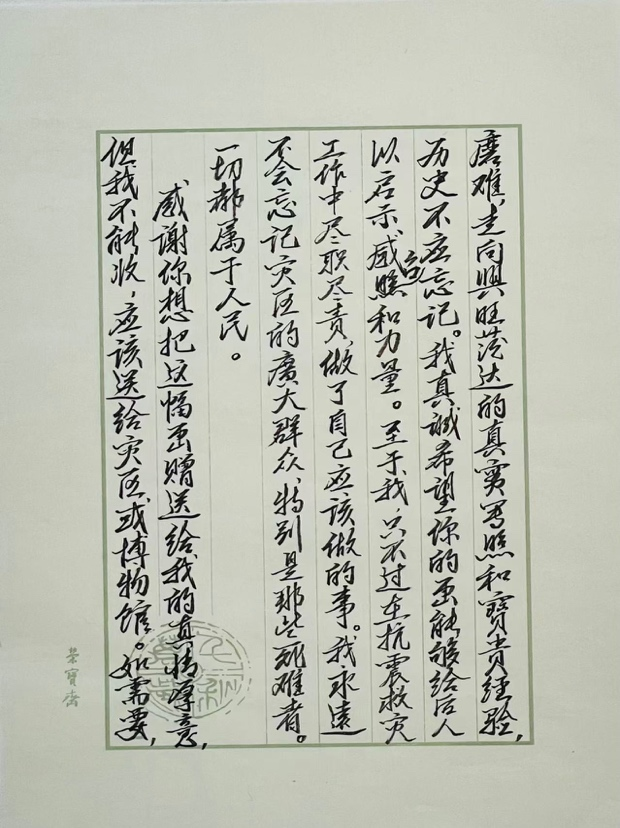 磨难，走向興旺发达的真实写照和寶贵经验，
历史不应忘记。我真诚希望你的画能够给后人
以启示、感召和力量。至于我，只不过在抗震救灾
工作中尽职尽责，做了自己应该做的事。我永远
不会忘记灾区的廣大群众，特别是那些死难者。
一切都属于人民。
感谢你想把这幅画赠送给我的真情厚意，
但我不能收，应该送给灾区或博物馆。如需要，
荣寶斋